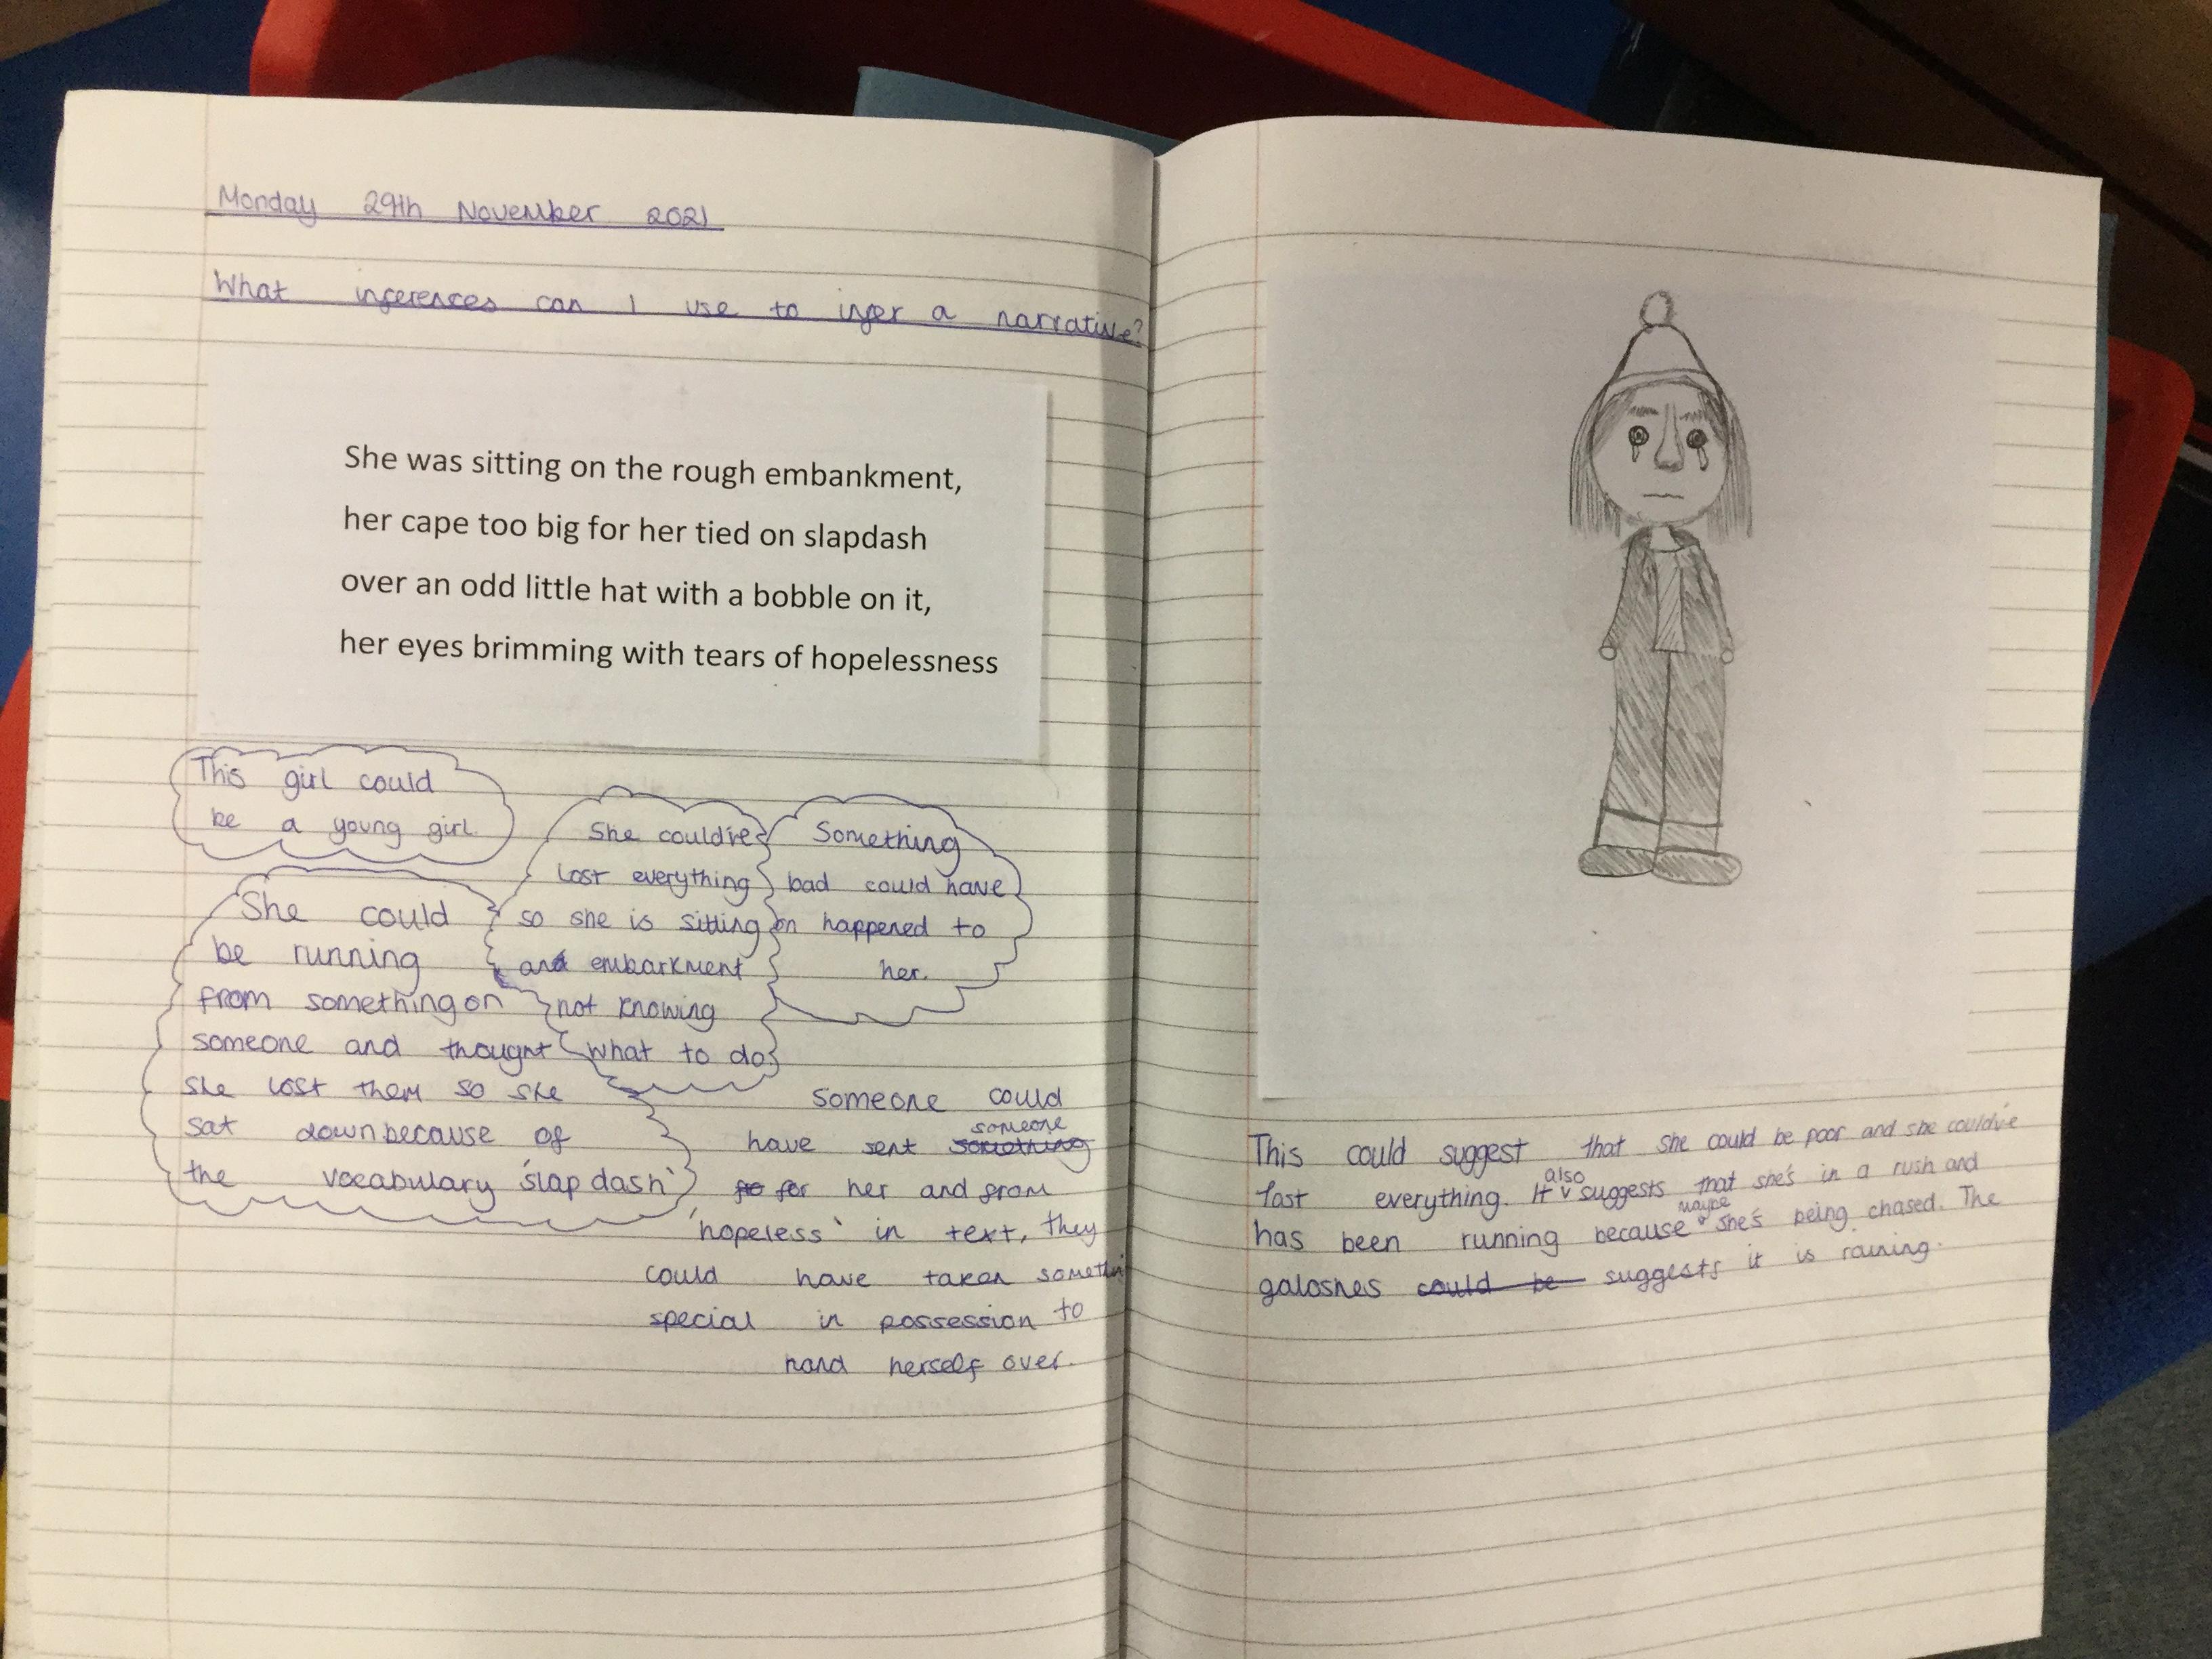 Monday 29th November 2021
What inferences can I use to infer a narrative?
She was sitting on the rough embankment,
her cape too big for her tied on slapdash
over an odd little hat with a bobble on it,
her eyes brimming with tears of hopelessness
This girl could
be a young girl.
She could've
lost everything
so she is sitting on
and embarkment
not knowing
what to do.
Something
bad could have
happened to
her.
She could
be running
from something on
someone and thought
she lost them so she
sat down because of
the vocabulary 'slap dash'
someone could
someone
have sent something
fo for her and from
'hopeless' in text, they
could have taken somethin
special in possession to
hand herself over.
This could suggest that she could be poor and she could've
lost everything. It also suggests that she's in a rush and
has been running because maybe she's being chased. The
galoshes could be suggests it is raining.